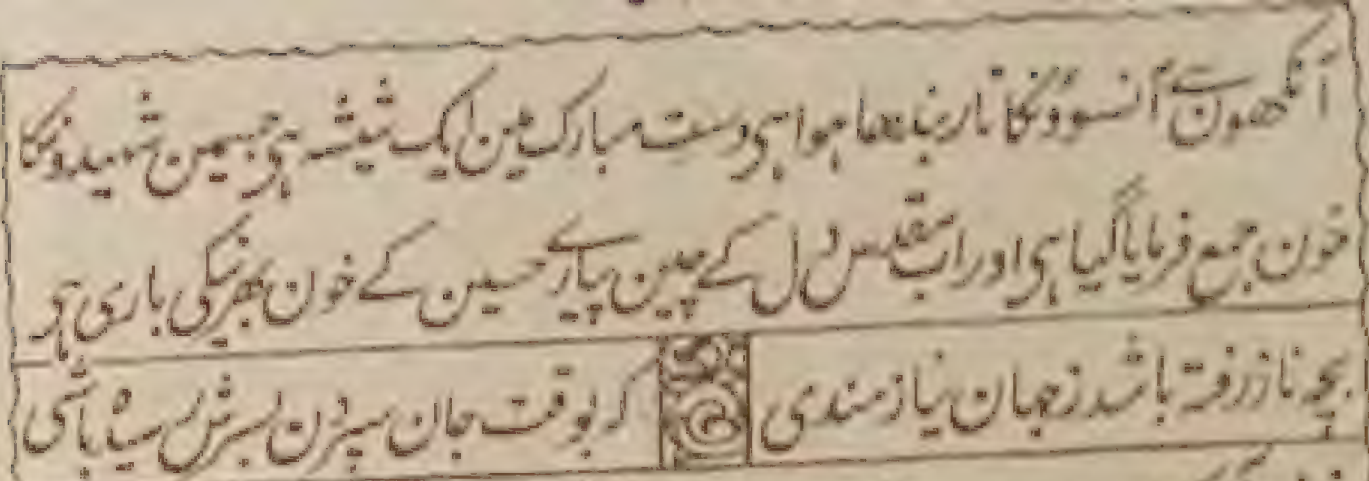 آنکھون سے آنسوؤنکا تار بندھا ہوا ہی دست مبارک مین ایک شیشہ ہی جسمین شہیدونکا
خون جمع فرمایا گیا ہی اور اب مقدس دل کے چین پیارے حسین کے خون بھرنیکی باری ہی
بچہ ناز رفتہ باشد ز جہان نیازمندی
کہ بوقت جان سپردن بسرش رسیدہ باشی